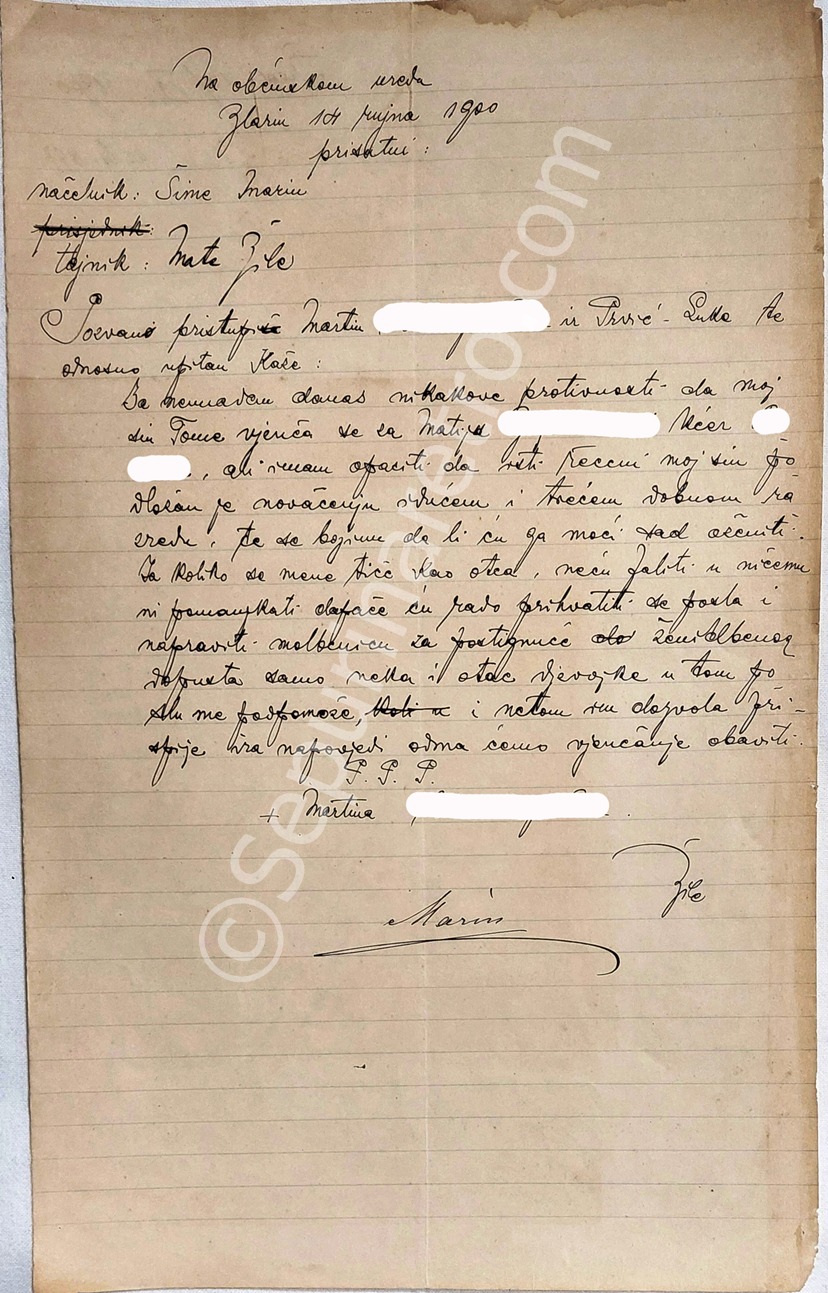 Na obćinskom uredu
Zlarin 14 rujna 1900
prisutni:
načelnik: Šime Marin
prisjednik:
tajnik: Mate Žile
Pozvano pristupiše Martin iz Prvić-Luke te
odnosno upitan Kaže:
Da nemadem danas nikakove protivnosti da moj
sin Tome vjenča se za Matija Kćer
, ali imam opaziti da isti rečeni moj sin po
dložan je novačenju idućem i trećem dobnom ra
zredu, te se bojim da li ću ga moći sad oženiti.
Za koliko se mene tiče kao otca, neću faliti u ničemu
ni pomanjkati dapače ću rado prihvatiti se posla i
napraviti molbenicu za postignuće do ženidbenog
dopusta samo neka i otac djevojke u tom po
slu me podpomože, i netom im dozvola pri-
spije iza napovjedi odma ćemo vjenčanje obaviti.
P. P. P.
+ Martina
Žile
Marin
©Sepurinaretro.com